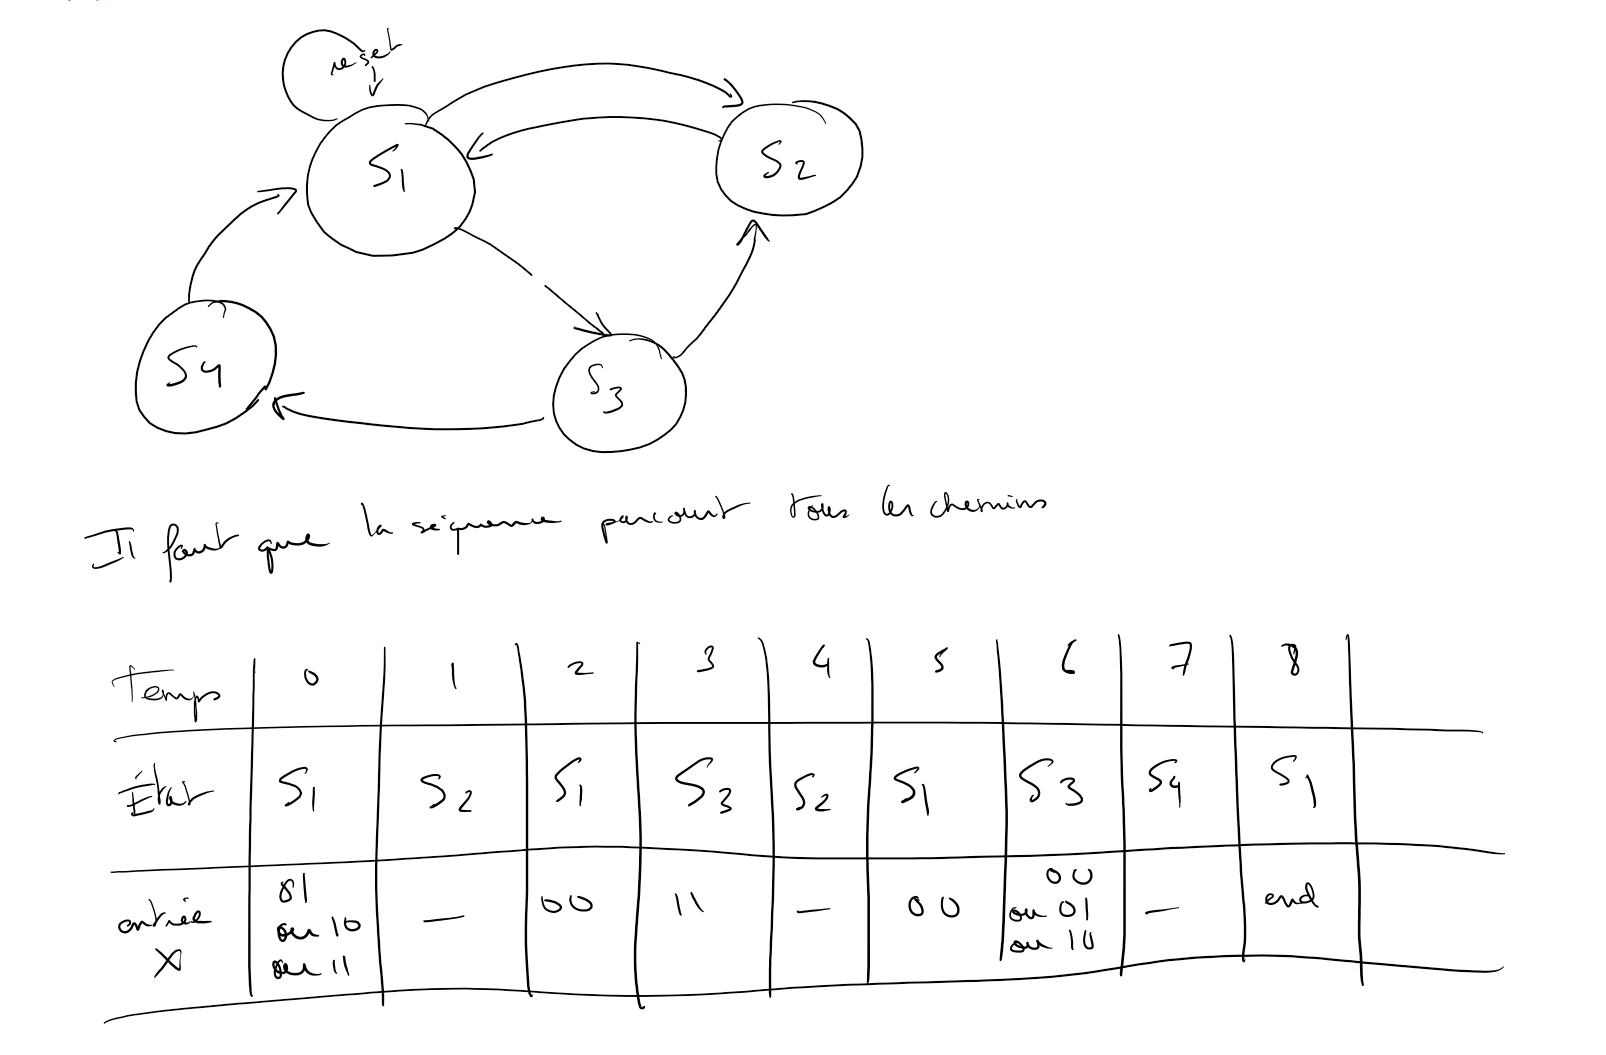 reset
S1
S2
S4
S3
Il faut que la séquence parcourt tous les chemins
Temps 0 1 2 3 4 5 6 7 8
État S1 S2 S1 S3 S2 S1 S3 S4 S1
entrée X 01 ou 10 ou 11 — 00 11 — 00 00 ou 01 ou 10 — end